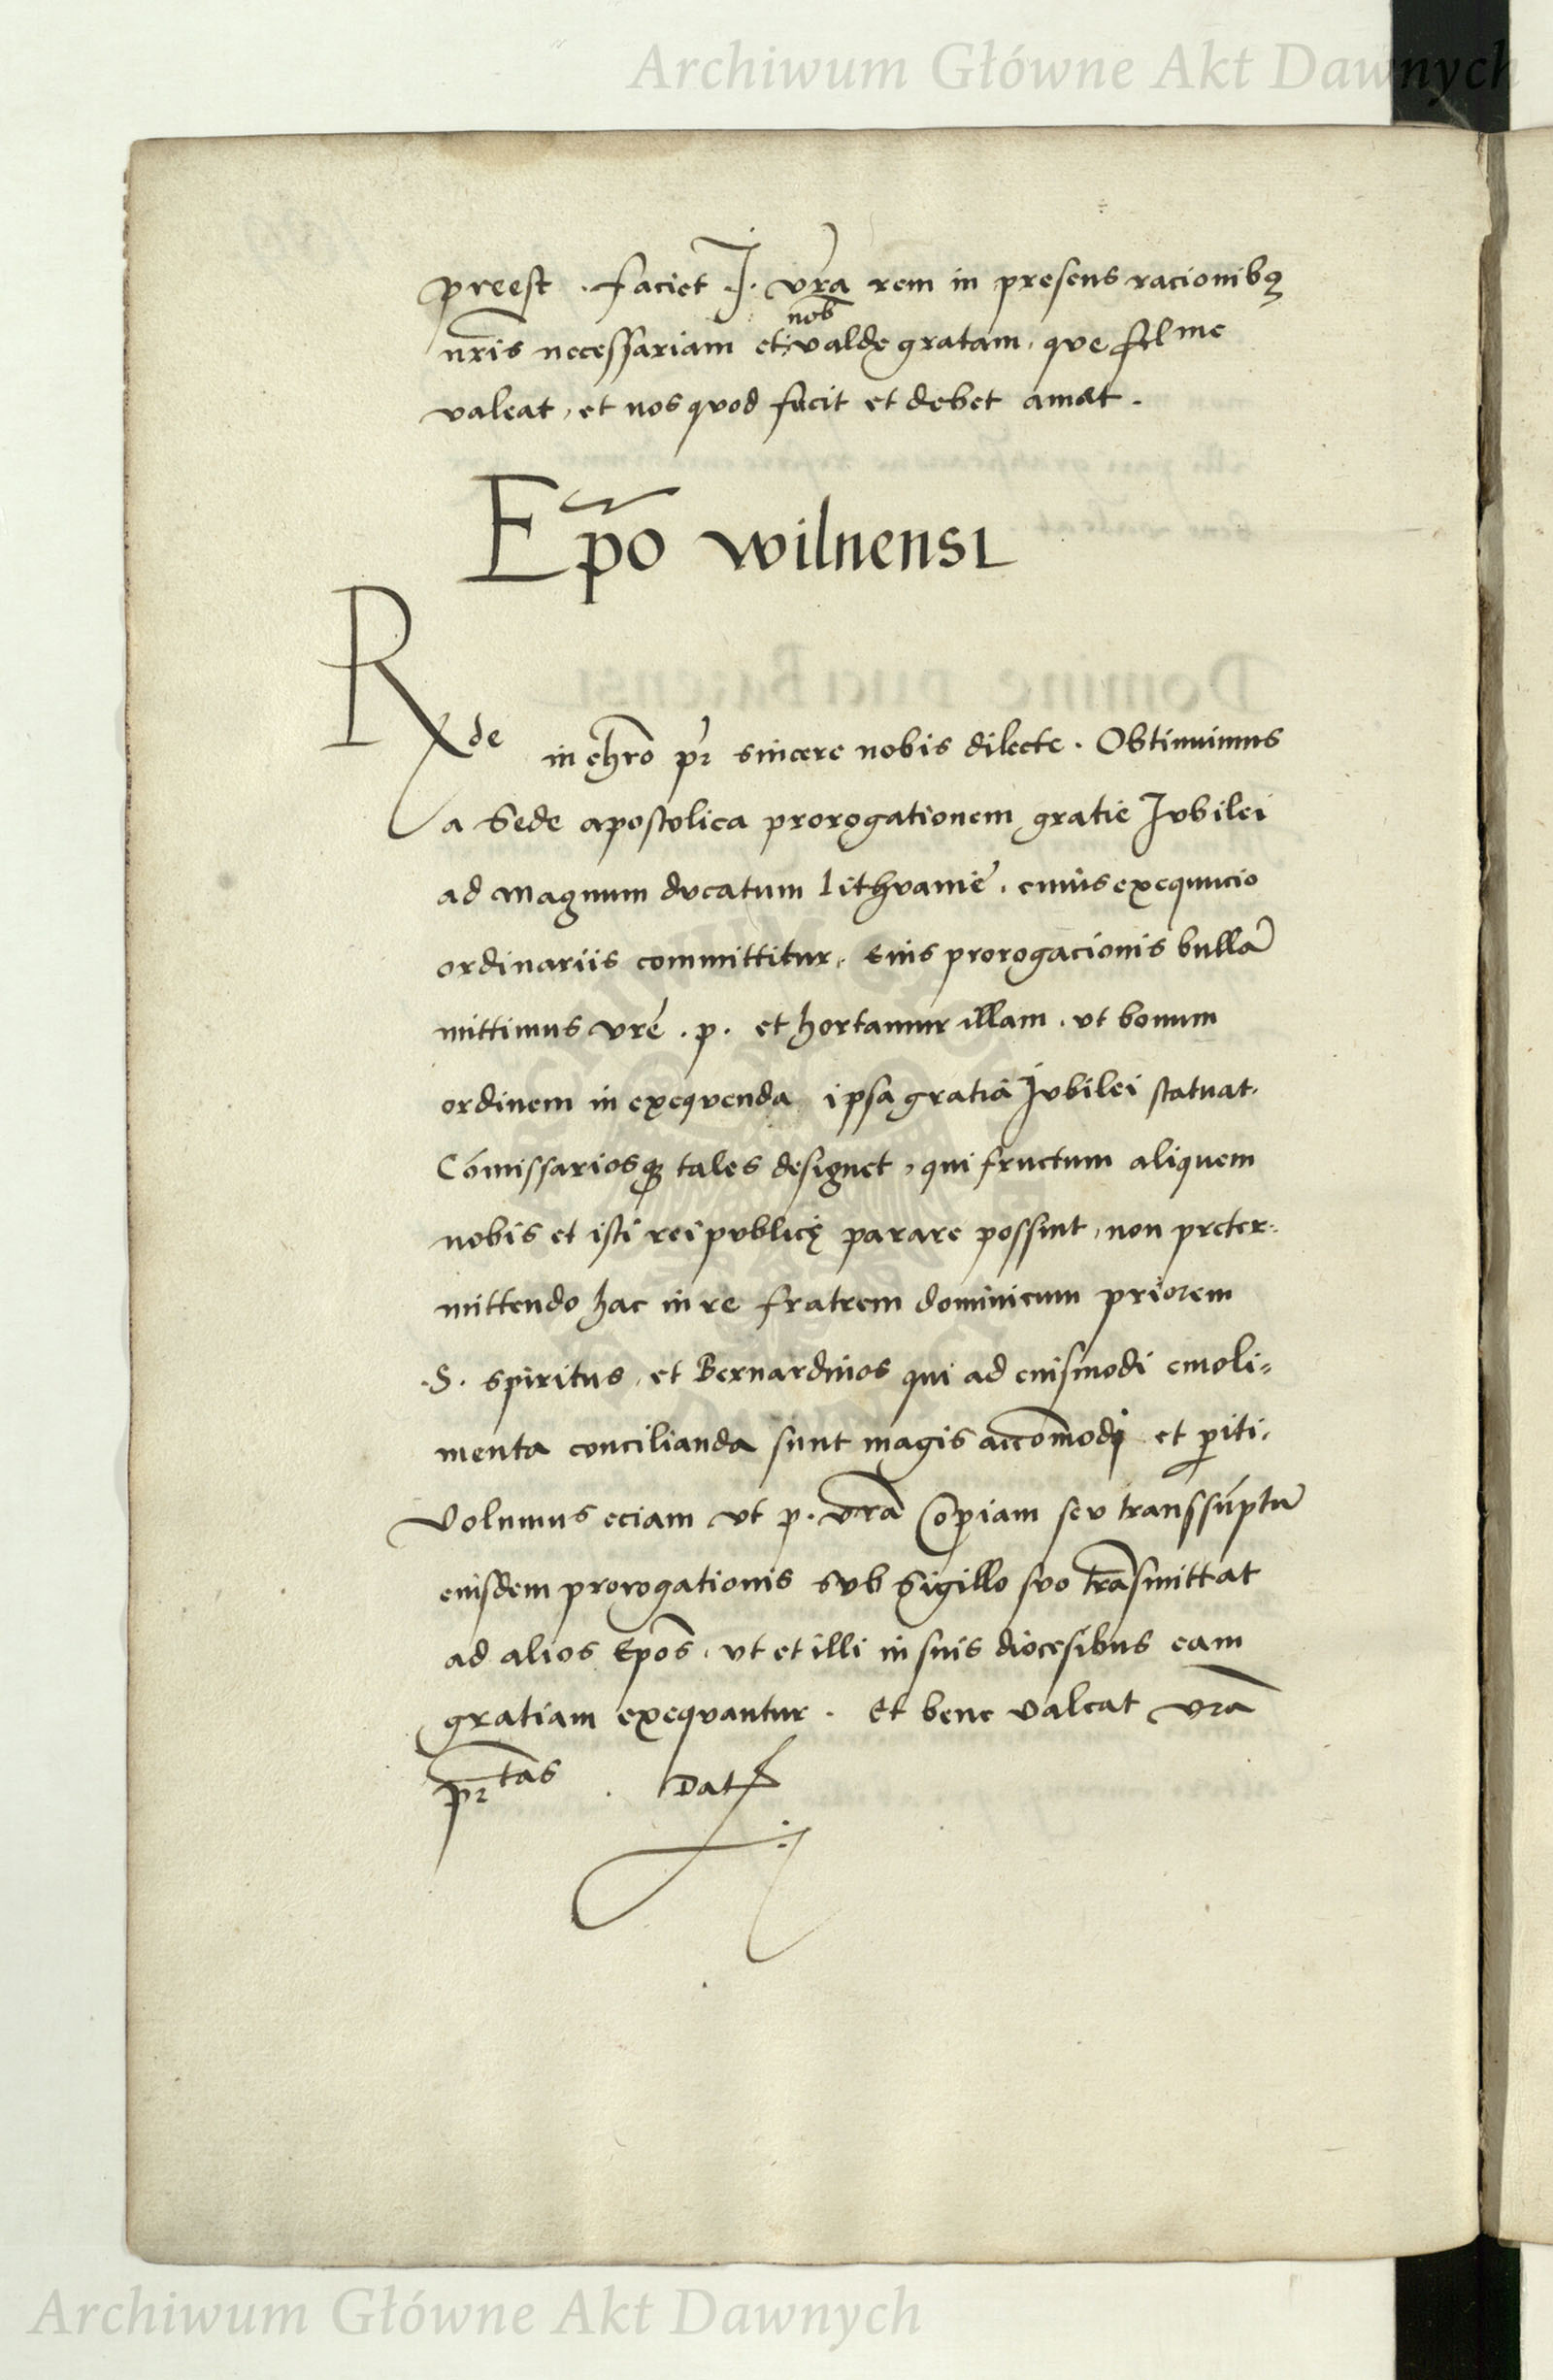 Archiwum Główne Akt Dawnych
preest . faciet .J. vr̃a rem in presens racionibꝫ
nr̃is necessariam et nob̃ valde gratam, que fel^me
valeat, et nos quod facit et debet amet .
Ep̃o wilnensi
R^de in chr̃o pr̃ sincere nobis dilecte . Obtinuimus
a Sede apostolica prorogationem gratie Jubilei
ad magnum ducatum Lithvanie, cuius exequucio
ordinariis committitur, Eius prorogacionis bullã
mittimus vr̃e .p. et hortamur illam, vt bonum
ordinem in exequenda ipsa gratia Jvbilei statuat,
Com̃issariosqꝫ tales designet, qui fructum aliquem
nobis et isti rei pvblicę parare possint, non preter-
mittendo hac in re fratrem dominicum priorem
.S. spiritus, et Bernardinos qui ad eiusmodi emoli-
menta concilianda sunt magis accom̃odi et ꝑiti,
Volumus eciam vt p. vr̃a Copiam seu transsũptũ
eiusdem prorogationis svb Sigillo svo trãsmittat
ad alios Ep̃os, vt et illi in suis diocesibus eam
gratiam exequantur . Et bene valeat vr̃a
pr̃^tas . Dat̃
Archiwum Główne Akt Dawnych